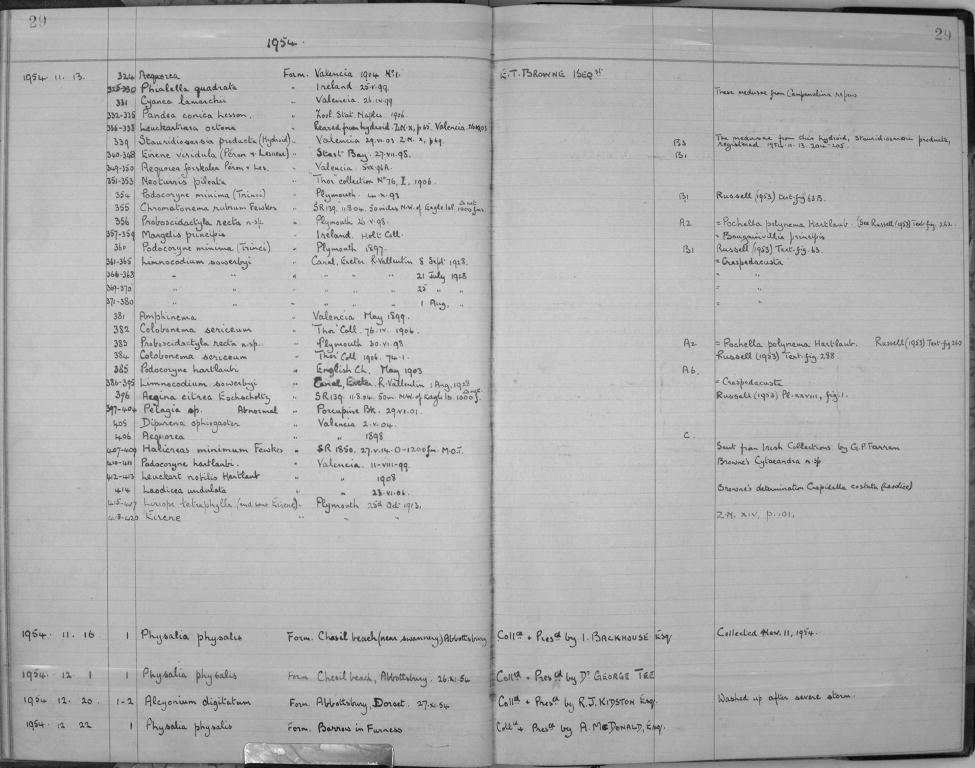 29 29
1954.
1954. 11. 13. 324 Aequorea Form. Valencia 1904 No 1. E.T. BROWNE BEQst
325-330 Phialella quadrata " Ireland 25.v.99. These medusae from Campanulina repens
331 Cyanea lamarckii " Valencia. 26.iv.99
332-335 Pandea conica Lesson. " Zool. Stat. Naples. 1906.
336-338 Leuckartiara octona " Reared from hydroid. Z.N.x, p 65. Valencia.
339 Stauridiosarsia producta (Hydroid) " Valencia 29.vi.03 Z.N. x, p69. B3 The medusae from this hydroid, Stauridiosarsia producta, registered 1954.11.13. 204-205.
340-348 Eirene viridula (Péron & Lesueur) " Start Bay. 27.vii.98. B1
349-350 Aequorea forskalea Péron & Les. " Valencia
351-353 Neoturris pileata " 'Thor' collection No 76, II, 1906.
354 Podocoryne minima (Trinci) " Plymouth. 4.x.93 B1 Russell (1953) Text-fig 63B.
355 Chromatonema rubrum Fewkes " SR139. 11.8.04. 50 miles N.W. of Eagle Isd. 0 net 1000 fms.
356 Proboscidactyla recta n.sp. " Plymouth 26.v.98. A2 = Pochella polynema Hartlaub. (See Russell (1953) Text-fig. 262.
357-359 Margelis principis " Ireland. Holt Coll. = Bougainvillia principis
360 Podocoryne minima (Trinci) " Plymouth 1897. B1 Russell (1953) Text-fig. 63.
361-365 Limnocodium sowerbyi " Canal, Exeter. R. Vallentin 8 Sept 1928. = Craspedacusta
366-368 " " " " " 21 July 1928 " "
369-370 " " " " " 25 " " " "
371-380 " " " " " 1 Aug. " " "
381 Amphinema " Valencia May 1899.
382 Colobonema sericeum " 'Thor' Coll. 76.iv. 1906.
383 Proboscidactyla recta n.sp. " Plymouth 30.vi.98 A2 = Pochella polynema Hartlaub. Russell (1953) Text-fig 260
384 Colobonema sericeum " 'Thor' Coll 1906. 74.1. Russell (1953) Text-fig 288.
385 Podocoryne hartlaubi " English Ch. May 1903 A6.
386-395 Limnocodium sowerbyi " Canal, Exeter. R. Vallentin 1 Aug. 1928 = Craspedacusta
396 Aegina citrea Eschscholtz " SR139. 11.8.04. 50m. N.W. of Eagle Isd. 0 net 1000 f. Russell (1953) Pl.xxviii, fig. 1.
397-404 Pelagia sp. Abnormal " Porcupine Bk. 29.vi.01.
405 Dipurena ophiogaster " Valencia 2.v.04.
406 Aequorea " " 1898 C.
407-409 Halicreas minimum Fewkes " SR 1850. 27.v.14. 0-1200 fm. M.O.T. Sent from Irish Collections by G.P. Farran
410-411 Podocoryne hartlaubi. " Valencia. 11-viii-99. Browne's Cytaeandra n.sp
412-413 Leuckart nobilis Hartlaub " " 1908
414 Laodicea undulata " " 23.vi.06. Browne's determination Cuspidella costata (Laodice)
415-417 Liriope tetraphylla (and some Eirene). " Plymouth 25th Oct 1913.
418-420 Eirene " " " Z.N. xiv, p. 101.
1954. 11. 16 1 Physalia physalis Form. Chesil beach (near swannery) Abbottsbury Colltd & Presd by I. BACKHOUSE Esq Collected Nov. 11, 1954.
1954. 12. 1 1 Physalia physalis Form Chesil beach, Abbottsbury. 26.xi.54 Colltd & Presd by Dr GEORGE TEE
1954. 12. 20. 1-2 Alcyonium digitatum Form Abbottsbury, Dorset. 27.xi.54 Colltd & Presd by R.J. KIDSTON Esq. Washed up after severe storm.
1954. 12. 22 1 Physalia physalis Form. Barrow in Furness Colltd & Presd by A. McDONALD, Esq.